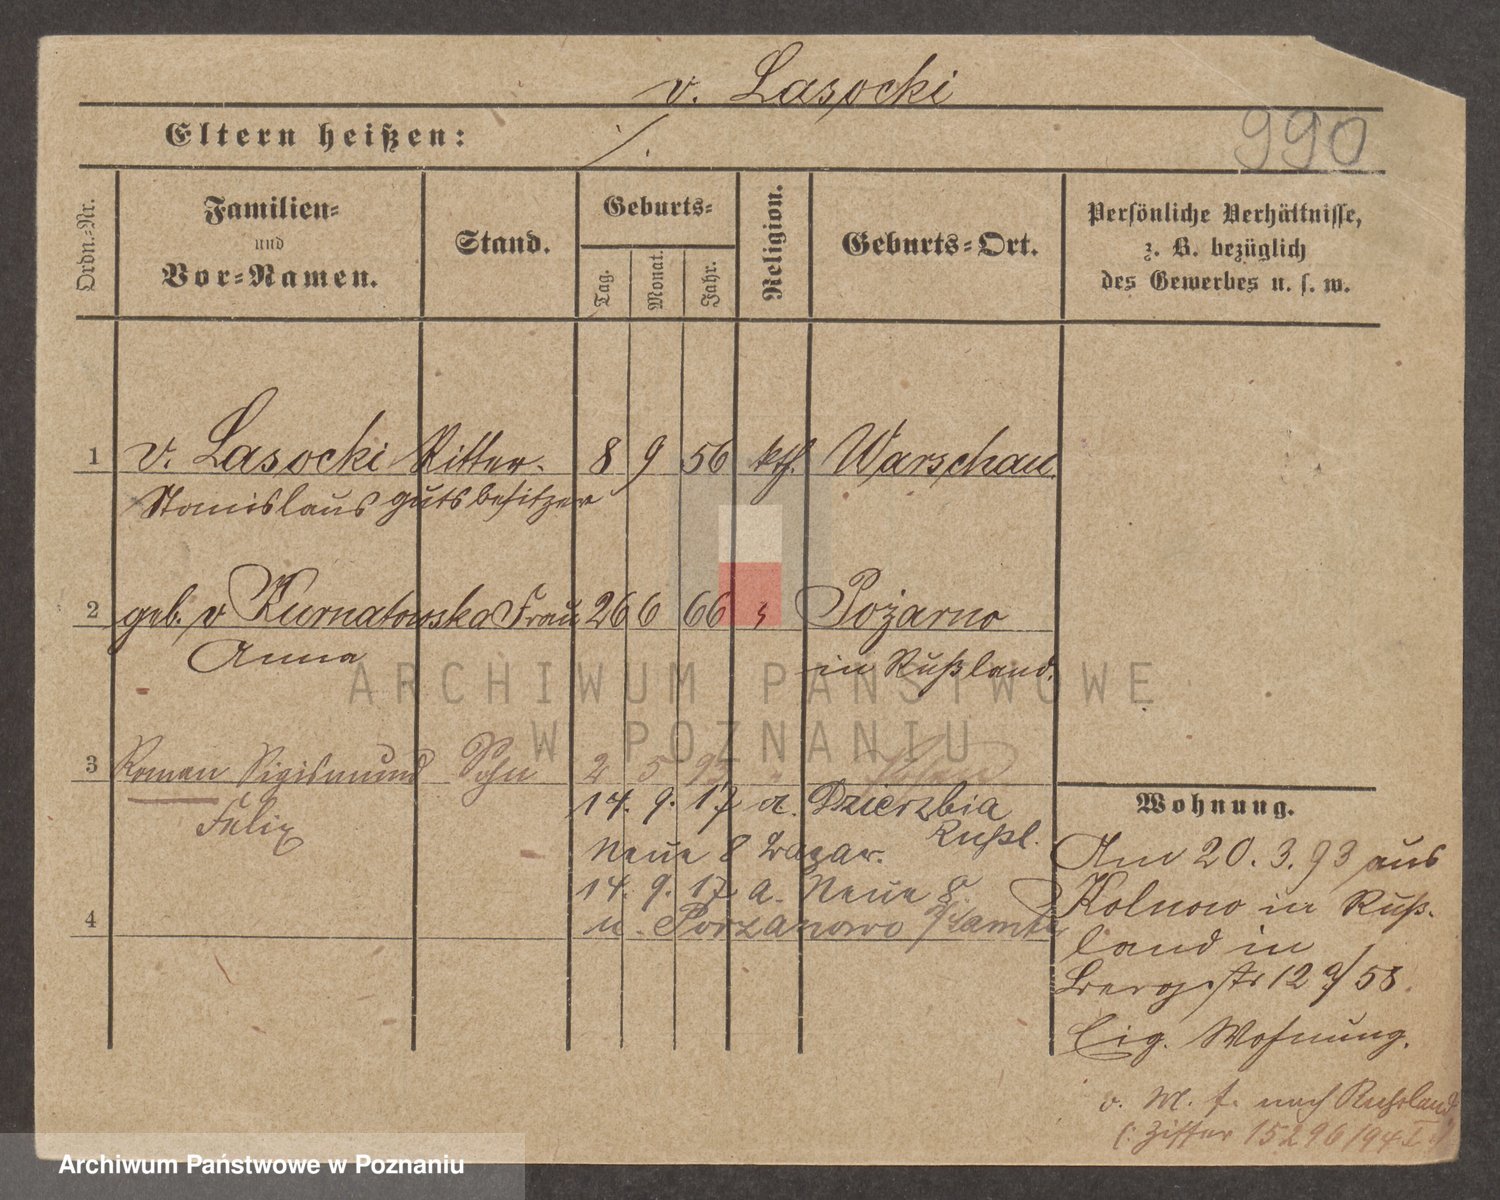 v. Lasocki
Eltern heißen:
./.
990
Ordn.-Nr.
Familien-
und
Vor-Namen.
Stand.
Geburts-
Tag.
Monat.
Jahr.
Religion.
Geburts-Ort.
Persönliche Verhältnisse,
z. B. bezüglich
des Gewerbes u. s. w.
1 v. Lasocki Ritter- 8 9 56 kth. Warschau
Stanislaus gutsbesitzer
2 geb. v Kurnatowska Frau 26 6 66 Pożarno
Anna in Rußland.
3 Roman Sigismund Sohn 2 5 93 Posen
Felix
14. 9. 17 a. Dzierzbia
Rußl.
Neue 8 Lazar.
14. 9. 17 a. Neue 8
n. Porzanowo
4
Wohnung.
Am 20. 3. 93 aus
Kolnowo in Ruß-
land in
Bergstr 12 a/ 58.
Eig. Wohnung.
v. M. f. nach Russland
(: Ziffer 15296/94 I :)
ARCHIWUM PAŃSTWOWE
W POZNANIU
Archiwum Państwowe w Poznaniu